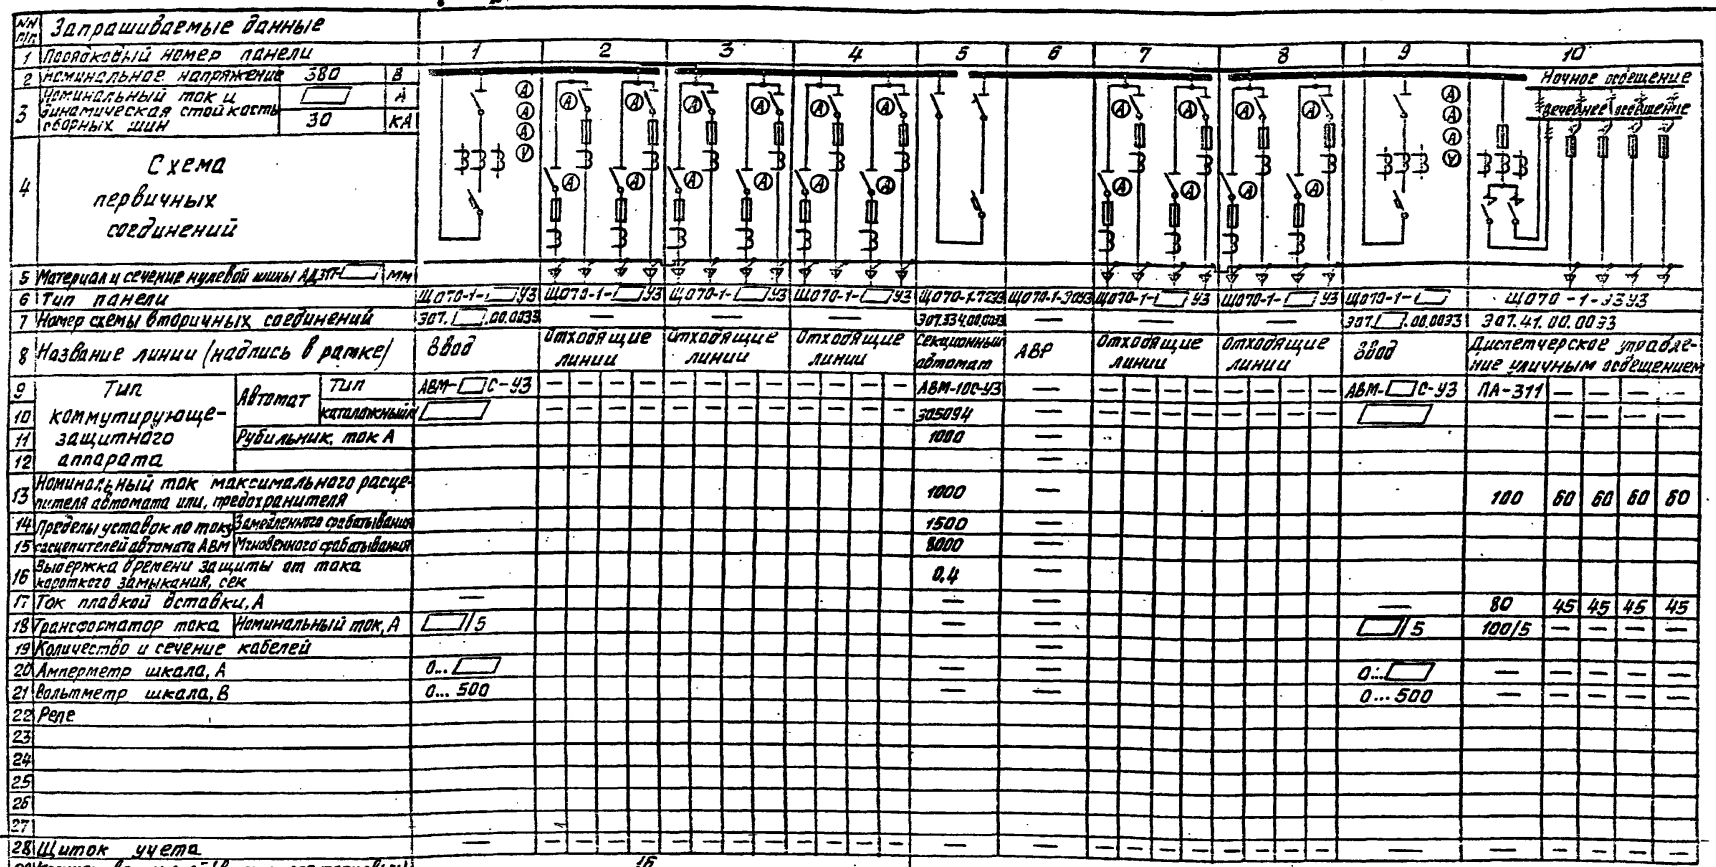 NN п/п Запрашиваемые данные
1 Порядковый номер панели 1 2 3 4 5 6 7 8 9 10
2 Номинальное напряжение 380 В
3 Номинальный ток и динамическая стойкость сборных шин А
30 кА
Ночное освещение
Вечернее освещение
4 Схема первичных соединений
5 Материал и сечение нулевой шины АД31Т- мм
6 Тип панели ЩО70-1- У3 ЩО70-1- У3 ЩО70-1- У3 ЩО70-1- У3 ЩО70-1-72У3 ЩО70-1-90У3 ЩО70-1- У3 ЩО70-1- У3 ЩО70-1- ЩО70-1-93У3
7 Номер схемы вторичных соединений 307. .00.00ЭЗ — — — 307.334.00.00ЭЗ — — — 307. .00.00ЭЗ 307.41.00.00ЭЗ
8 Название линии (надпись в рамке) Ввод Отходящие линии Отходящие линии Отходящие линии Секционный автомат АВР Отходящие линии Отходящие линии Ввод Диспетчерское управление уличным освещением
9 Тип коммутирующе-защитного аппарата Автомат Тип АВМ- С-У3 АВМ-10С-У3 — АВМ- С-У3 ПА-311
10 каталожный 305094 —
11 Рубильник, ток А 1000 —
12 —
13 Номинальный ток максимального расцепителя автомата или, предохранителя 1000 — 100 60 60 60 60
14 Пределы уставок по току расцепителей автомата АВМ Замедленного срабатывания 1500 —
15 Мгновенного срабатывания 8000 —
16 Выдержка времени защиты от тока короткого замыкания, сек 0,4 —
17 Ток плавкой вставки, А — — — — 80 45 45 45 45
18 Трансформатор тока Номинальный ток, А /5 — — /5 100/5 — — — —
19 Количество и сечение кабелей —
20 Амперметр шкала, А 0... — — 0... — — — — —
21 Вольтметр шкала, В 0...500 — — 0...500 — — — — —
22 Реле
23
24
25
26
27
28 Щиток учета — — — — — — — — — —
16